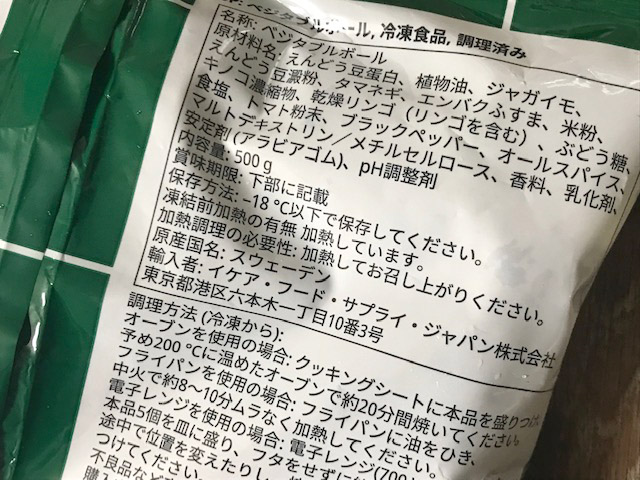 ベジタブルボール, 冷凍食品, 調理済み
名称: ベジタブルボール
原材料名: えんどう豆蛋白、植物油、ジャガイモ、
えんどう豆澱粉、タマネギ、エンバクふすま、米粉、
キノコ濃縮物、乾燥リンゴ（リンゴを含む）、ぶどう糖、
食塩、トマト粉末、ブラックペッパー、オールスパイス、
マルトデキストリン／メチルセルロース、香料、乳化剤、
安定剤 (アラビアゴム)、pH調整剤
内容量: 500 g
賞味期限: 下部に記載
保存方法: –18 °C以下で保存してください。
凍結前加熱の有無 加熱しています。
加熱調理の必要性: 加熱してお召し上がりください。
原産国名: スウェーデン
輸入者: イケア・フード・サプライ・ジャパン株式会社
東京都港区六本木一丁目10番3号
調理方法 (冷凍から):
オーブンを使用の場合: クッキングシートに本品を盛りつけ
予め200 °Cに温めたオーブンで約20分間焼いてください。
フライパンを使用の場合: フライパンに油をひき、
中火で約8〜10分ムラなく加熱してください。
電子レンジを使用の場合: 電子レンジ(700
本品5個を皿に盛り、フタをせずに
途中で位置を変えたりし
つけてください。
不良品など
購入